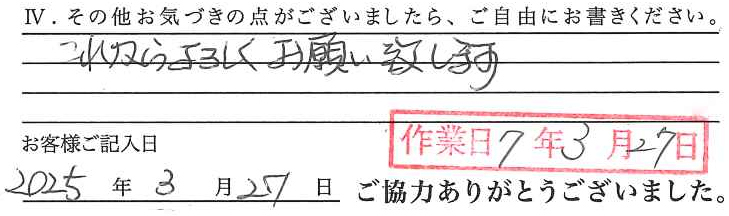 Ⅳ．その他お気づきの点がございましたら、ご自由にお書きください。
これからよろしくお願い致します
お客様ご記入日
作業日 7 年 3 月 27 日
2025 年 3 月 27 日 ご協力ありがとうございました。